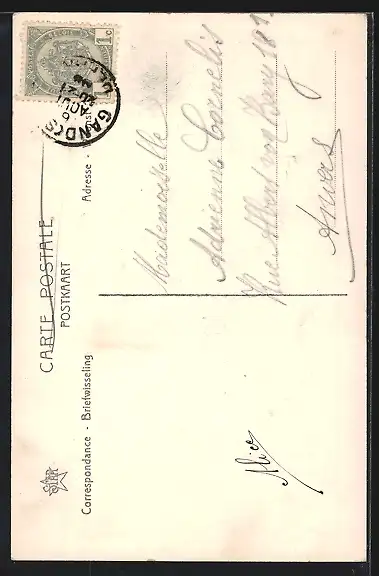 CARTE POSTALE
POSTKAART
Correspondance - Briefwisseling
Adresse -
1c
GAND
6
AOUT
20-21
Mademoiselle
Adrienne Cornelis
Rue Albert von Bary 181
Anvers
Alice
STAR